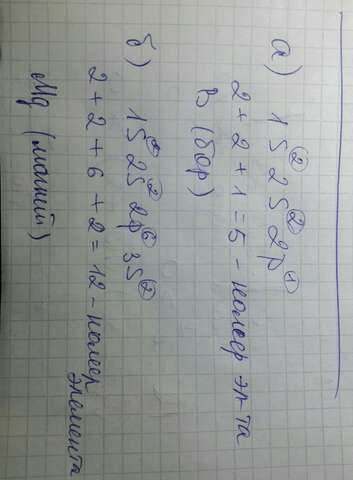 а) 1s② 2s② 2p①
2 + 2 + 1 = 5 - номер эл-та
B (бор)
б) 1s② 2s② 2p⑥ 3s②
2 + 2 + 6 + 2 = 12 - номер
элемента
Mg (магний)